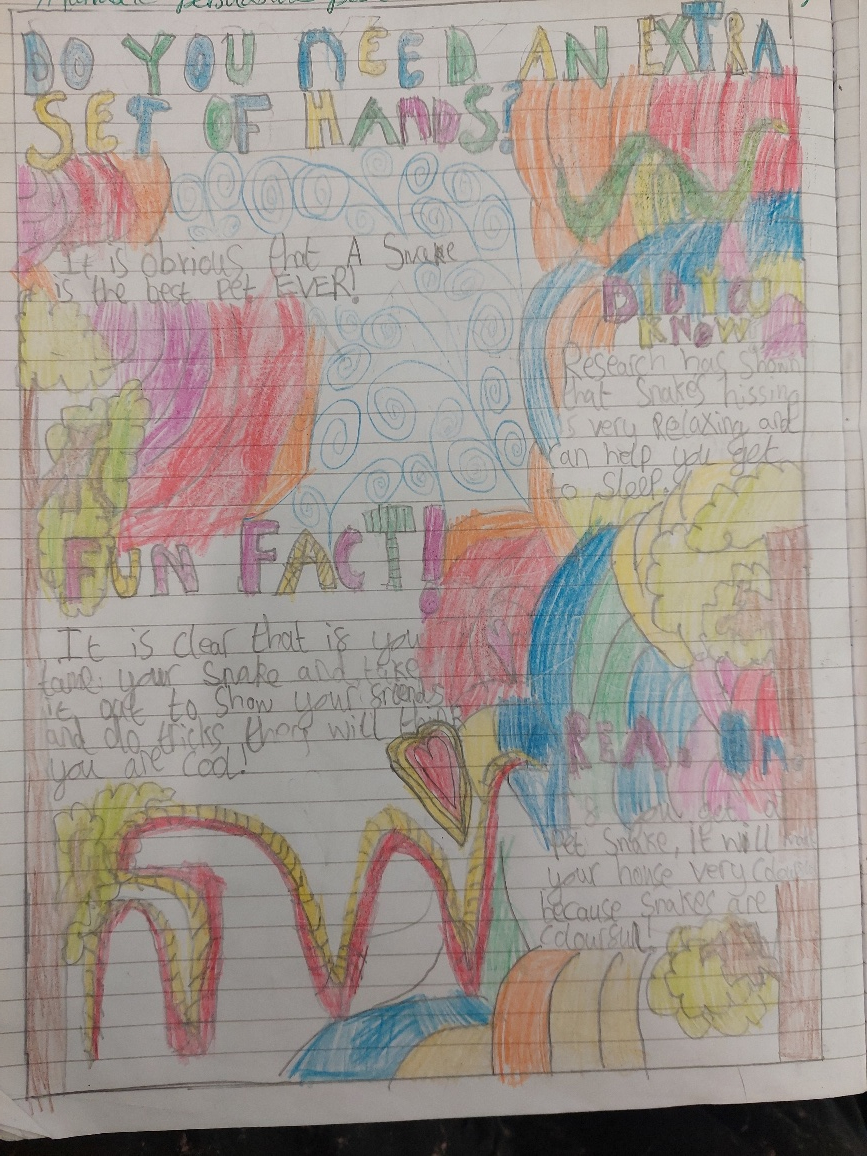 persuasive
DO YOU NEED AN EXTRA
SET OF HANDS?
It is obvious that A Snake
is the best Pet EVER!
DID YOU
KNOW
Research has shown
that Snakes hissing
is very Relaxing and
can help you get
to Sleep.
FUN FACT!
It is clear that is you
tame your Snake and take
it out to show your sreinds
and do tricks they will think
you are cool!
REA. OM.
you get a
Pet Snake, It will
your house very
because Snakes are
coloursul!